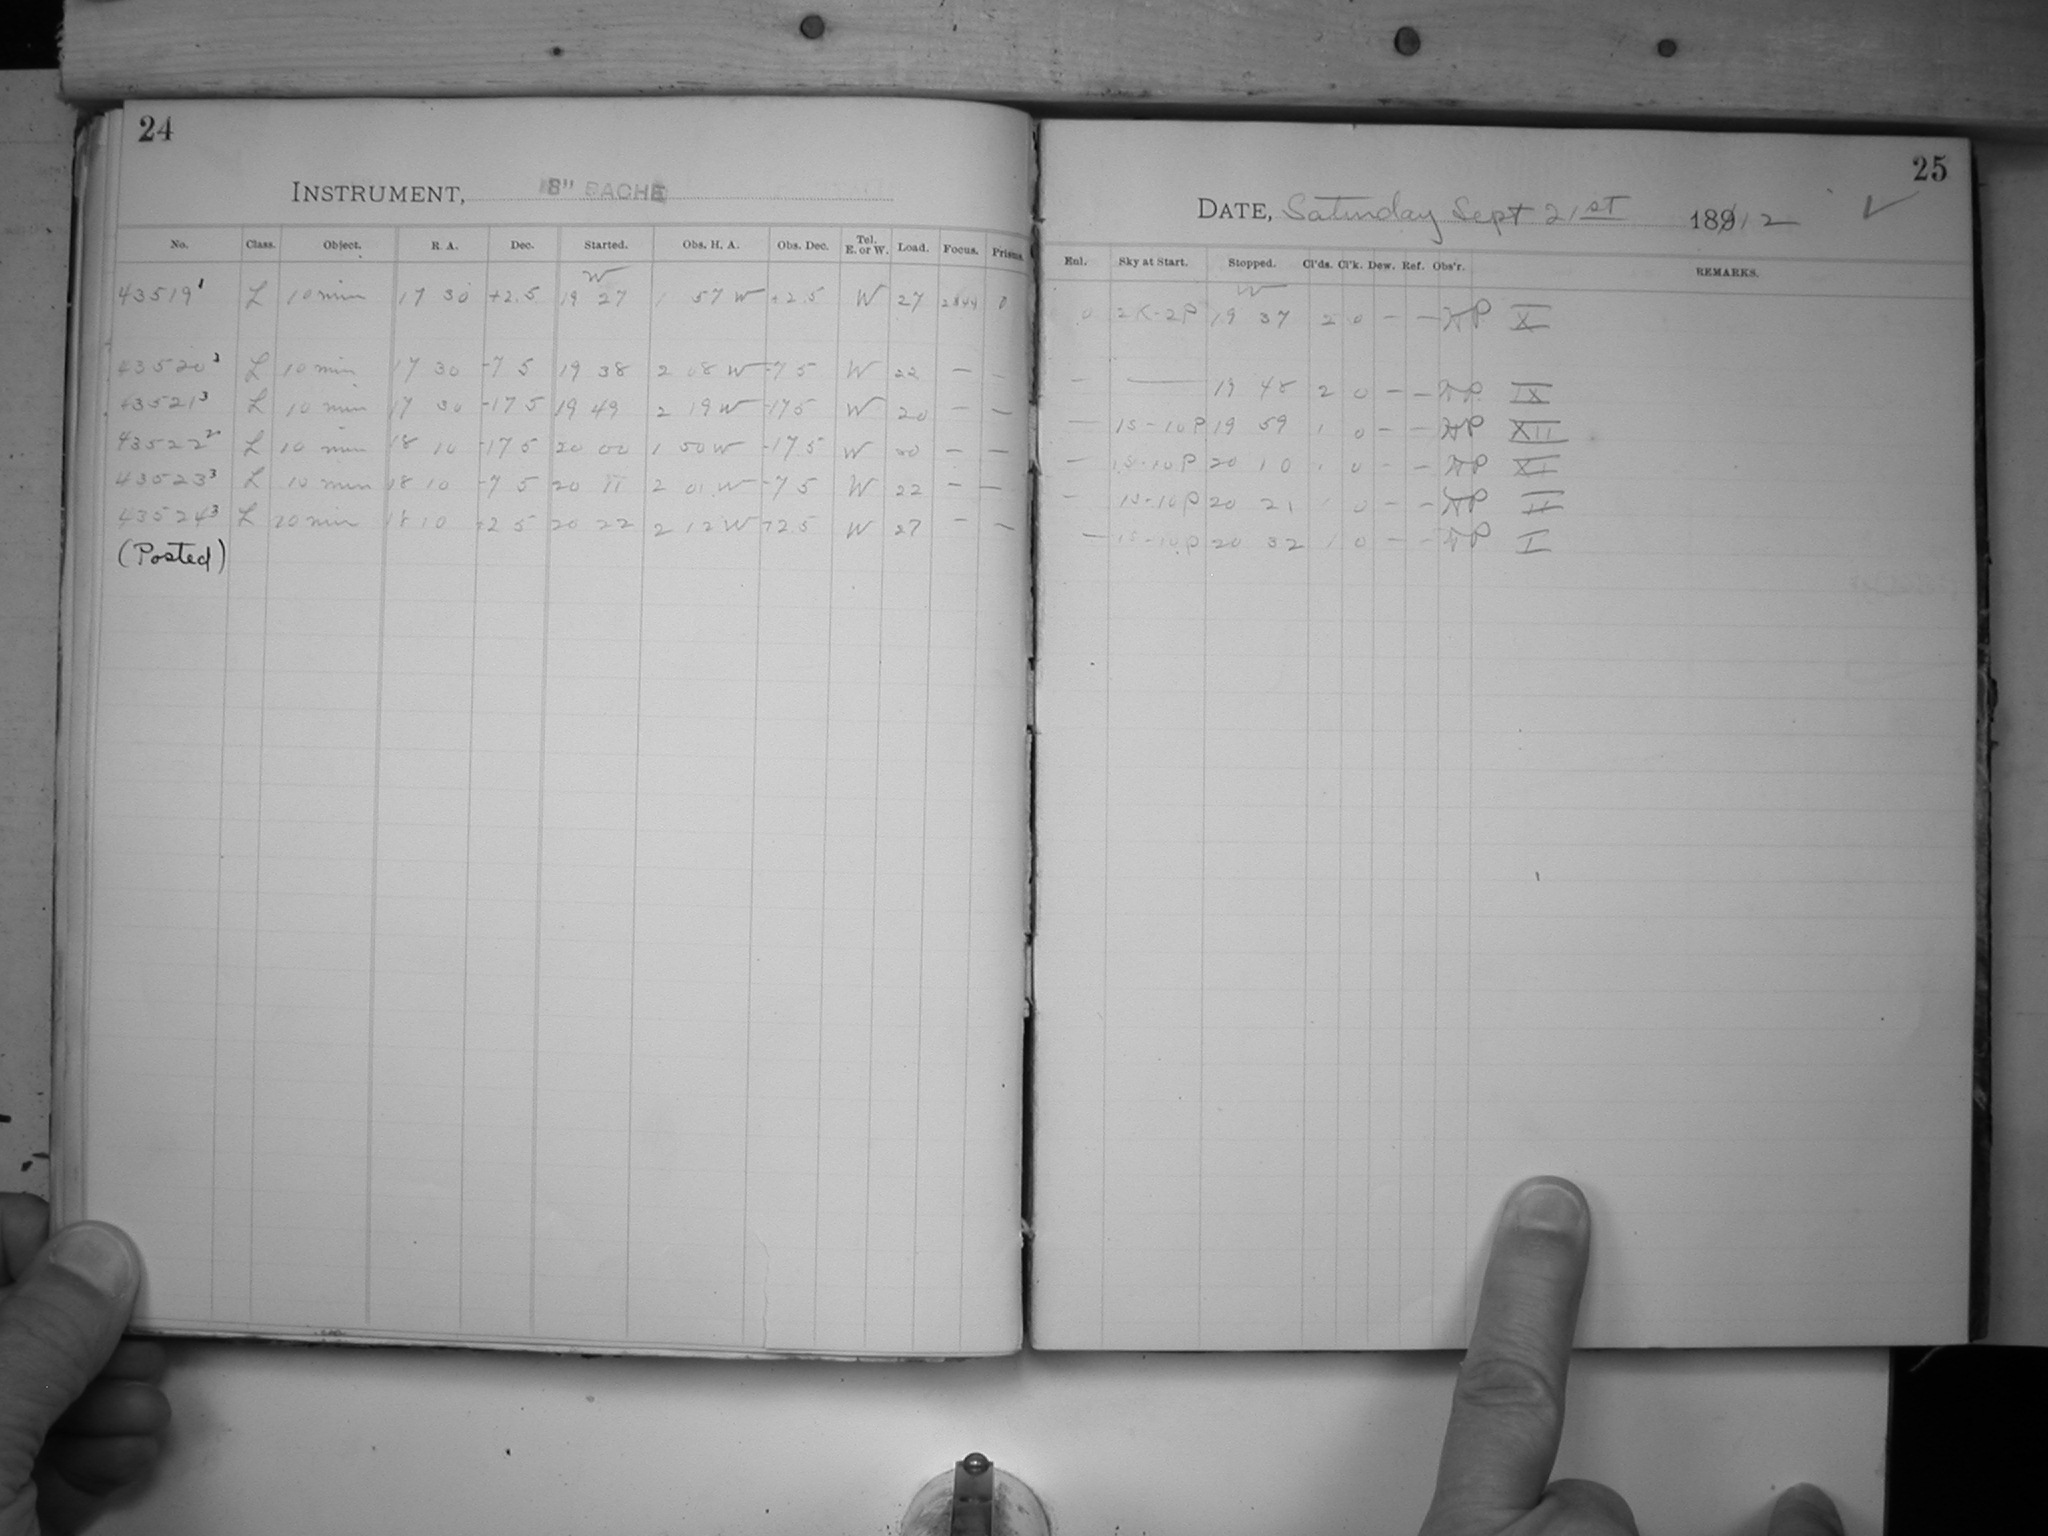 24
INSTRUMENT, 8" BACHE
No. Class. Object. R. A. Dec. Started. Obs. H. A. Obs. Dec. Tel. E. or W. Load. Focus. Prisms.
W
43519¹ L 10 min 17 30 +2.5 19 27 1 57 W +2.5 W 27 2844 0
43520³ L 10 min 17 30 -7 5 19 38 2 08 W -7 5 W 22 — —
43521³ L 10 min 17 30 -17 5 19 49 2 19 W -175 W 20 — —
43522² L 10 min 18 10 -17 5 20 00 1 50 W -17 5 W 20 — —
43523³ L 10 min 18 10 -7 5 20 11 2 01 W -7 5 W 22 — —
43524³ L 20 min 18 10 +2 5 20 22 2 12 W +2.5 W 27 — —
(Posted)
25
DATE, Saturday Sept 21st 1891 2 ✓
Enl. Sky at Start. Stopped. Cl'ds. Cl'k. Dew. Ref. Obs'r. REMARKS.
W
0 2K-2P 19 37 2 0 — — P X
— — 19 48 2 0 — — P IX
— 1S-10P 19 59 1 0 — — P XII
— 1S-10P 20 10 1 0 — — P XI
— 1S-10P 20 21 1 0 — — P II
— 1S-10P 20 32 1 0 — — P I